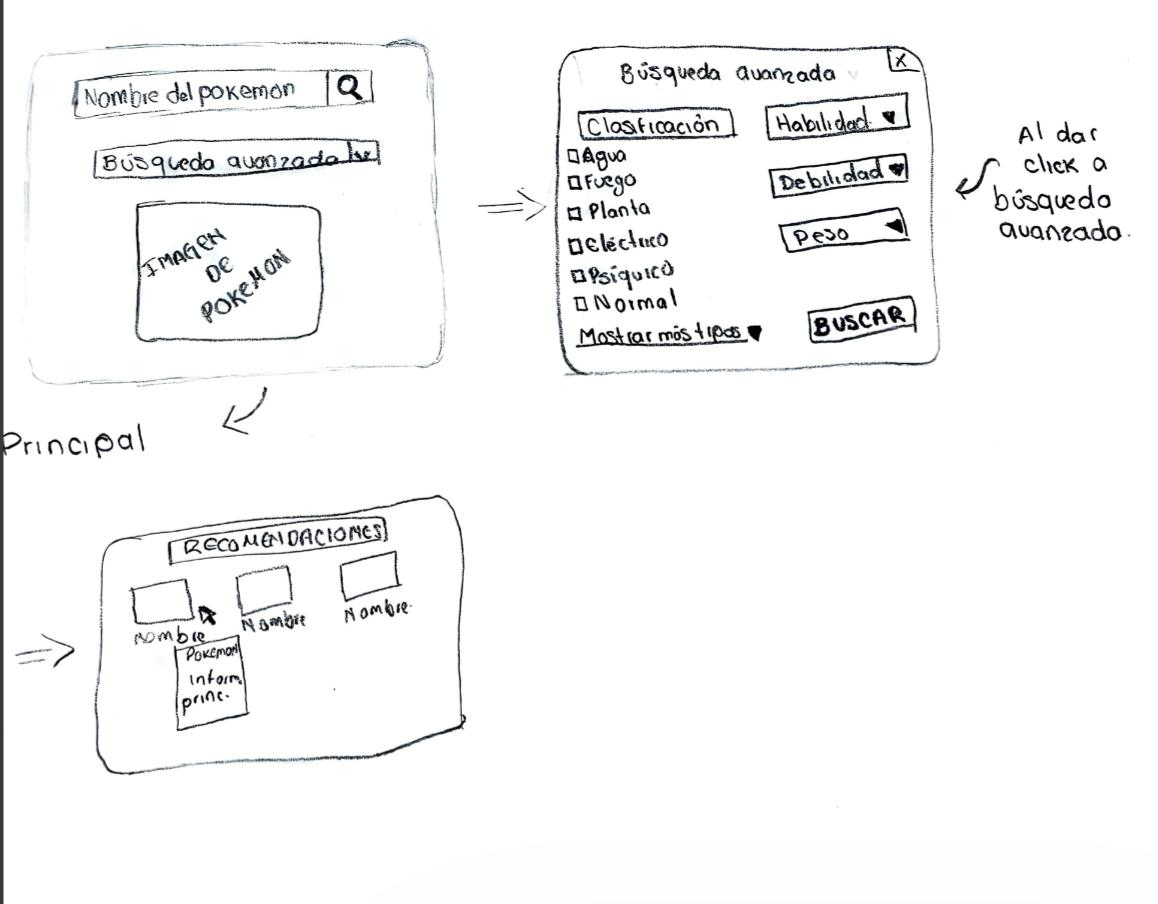 Nombre del pokemon
Búsqueda avanzada
IMAGEN
DE
POKEMON
Principal
Búsqueda avanzada
X
Clasificación
Agua
Fuego
Planta
Eléctrico
Psíquico
Normal
Mostrar más tipos
Habilidad
Debilidad
Peso
BUSCAR
Al dar
click a
búsqueda
avanzada.
RECOMENDACIONES
Nombre
Nombre
Nombre.
Pokemon
inform.
princ.